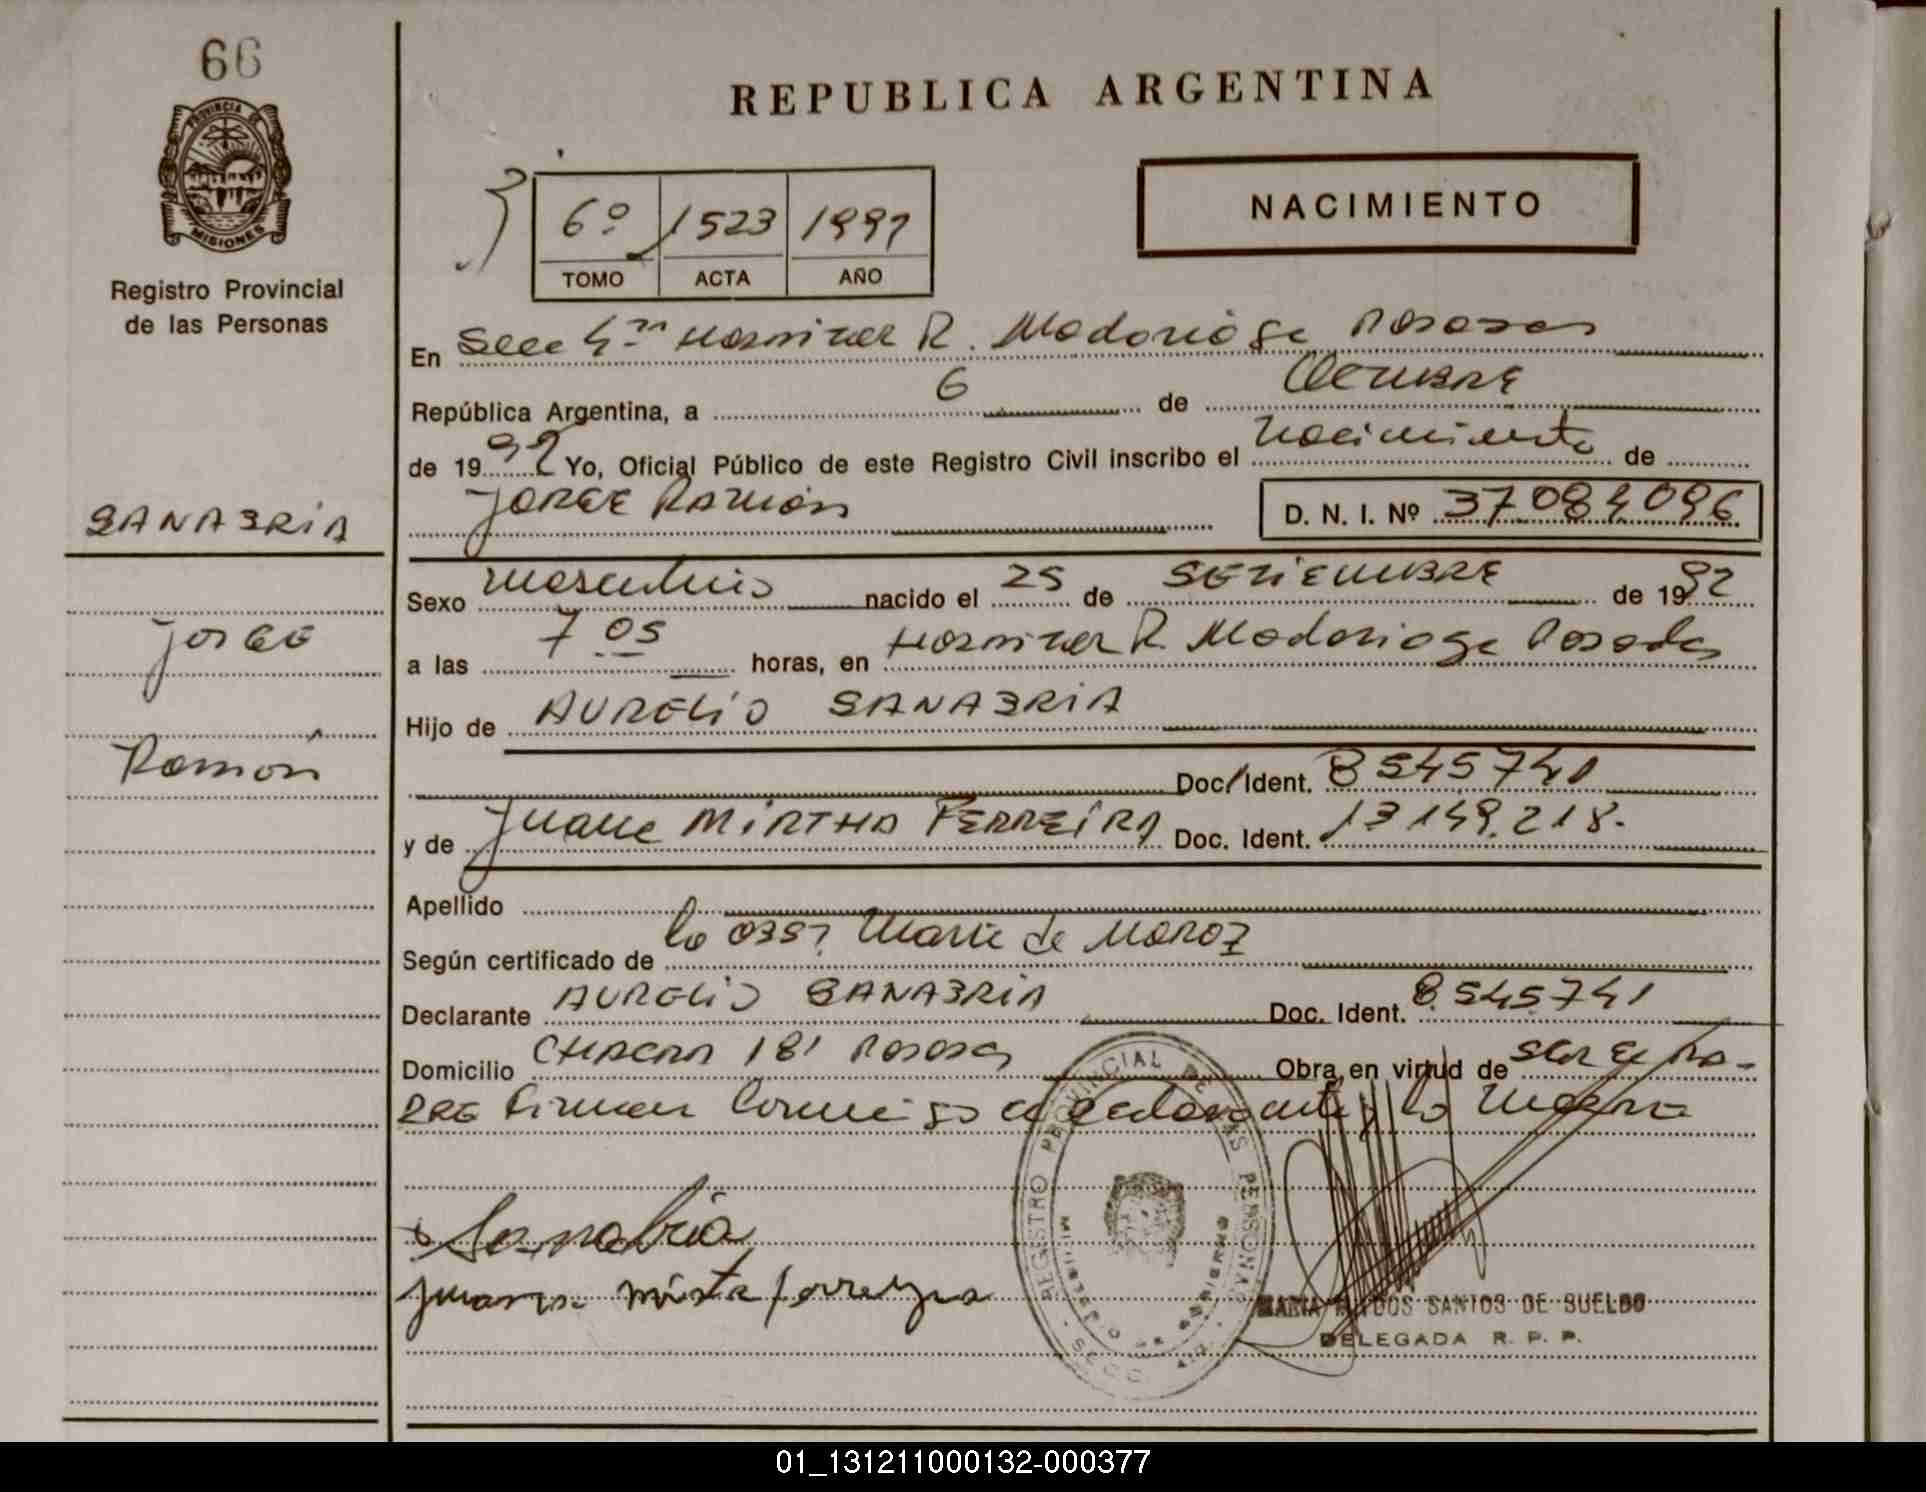 66
PROVINCIA DE
MISIONES
Registro Provincial
de las Personas
REPUBLICA ARGENTINA
NACIMIENTO
6º 1523 1992
TOMO ACTA AÑO
En Secc 4ª Hospital R. Madariaga Posadas
República Argentina, a 6 de Octubre
de 1992 Yo, Oficial Público de este Registro Civil inscribo el Nacimiento de
Jorge Ramón D. N. I. Nº 37084096
SANABRIA
Jorge
Ramón
Sexo Masculino nacido el 25 de SETIEMBRE de 1992
a las 7 05 horas, en Hospital R. Madariaga Posadas
Hijo de AURELIO SANABRIA
Doc/Ident. 8545741
y de Juana MIRTHA FERREIRA Doc. Ident. 13149.218.
Apellido
Según certificado de la Obst Maria de
Declarante AURELIO SANABRIA Doc. Ident. 8.545.741
Domicilio CHACRA 181 Posadas Obra en virtud de ser el pa-
dre Firman Conmigo el declarante y la Madre
Sanabria
Juana mirta ferreyra
REGISTRO PROVINCIAL DE LAS PERSONAS
MARIA DOS SANTOS DE SUELDO
DELEGADA R. P. P.
01_131211000132-000377